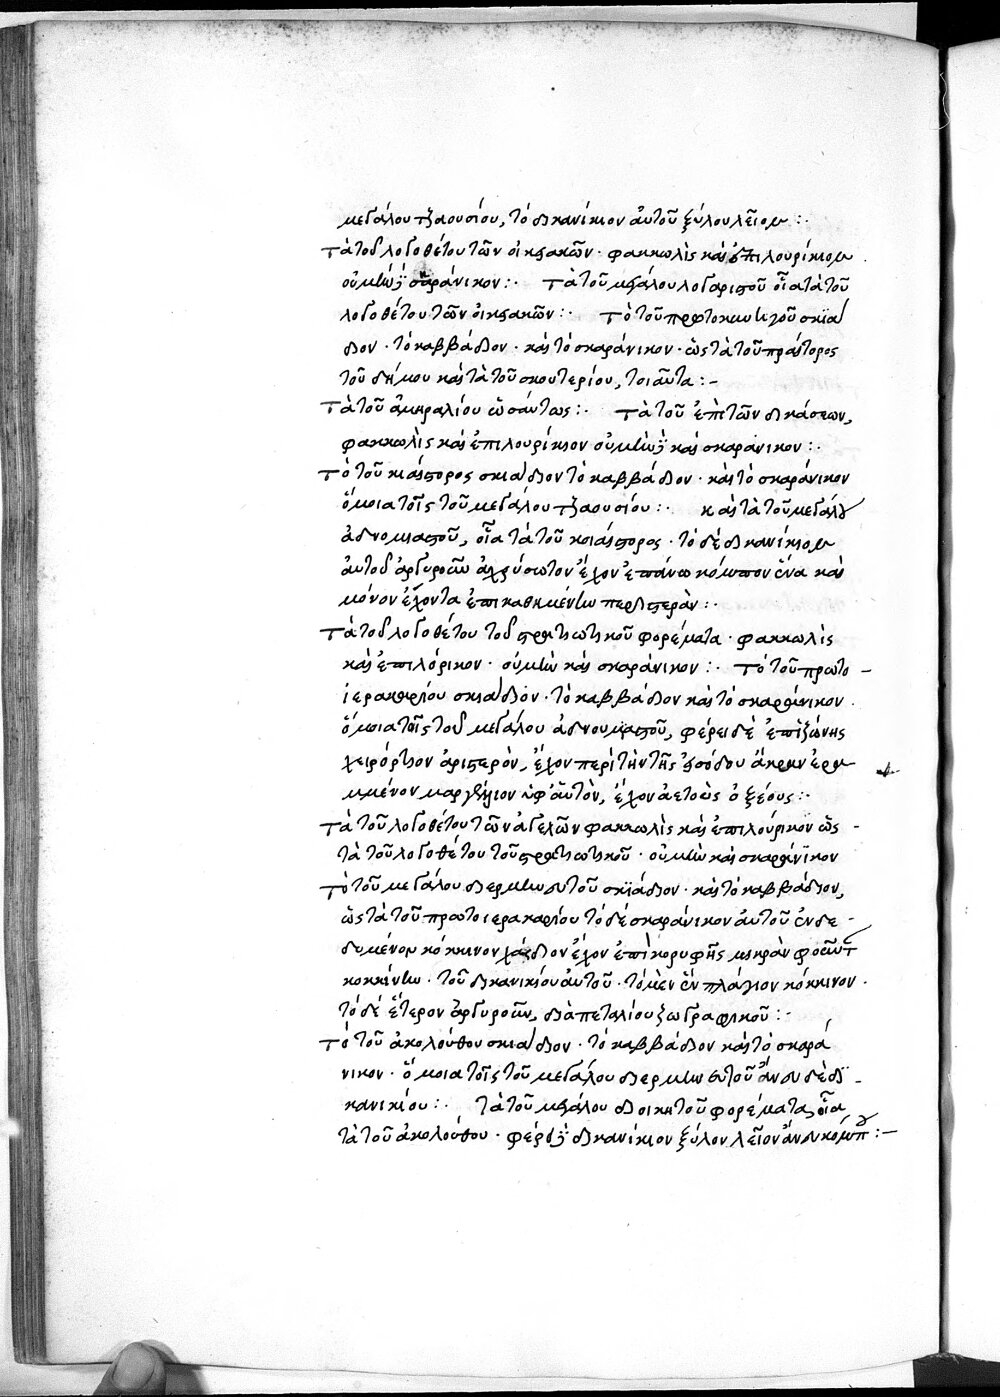 μεγάλου τζαουσίου, τὸ δικανίκιον αὐτοῦ ξύλου λεῖον :·
Τὰ τοῦ λογοθέτου τῶν οἰκειακῶν · φακιωλὶς καὶ ἐπιλουρίκιον
οὐ μὴν δὲ σκαράνικον :· Τὰ τοῦ μεγάλου λογαριαστοῦ οἷα τὰ τοῦ
λογοθέτου τῶν οἰκειακῶν :· Τὸ τοῦ πρωτοκυνηγοῦ σκιά
διον · τὸ καββάδιον · καὶ τὸ σκαράνικον · ὡς τὰ τοῦ πραίτορος
τοῦ δήμου καὶ τὰ τοῦ σκουτερίου, τοιαῦτα :–
Τὰ τοῦ ἀμηραλίου ὡσαύτως :· Τὰ τοῦ ἐπὶ τῶν δεήσεων,
φακιωλὶς καὶ ἐπιλουρίκιον οὐ μὴν δὲ καὶ σκαράνικον :·
Τὸ τοῦ κιαίστορος σκιάδιον τὸ καββάδιον · καὶ τὸ σκαράνικον
ὅμοια τοῖς τοῦ μεγάλου τζαουσίου :· καὶ τὰ τοῦ μεγάλου
ἀδνουμιαστοῦ, οἷα τὰ τοῦ κοιαίστορος · τὸ δὲ δικανίκιον
αὐτοῦ ἀργυροῦν ἀχρύσωτον ἔχον ἐπάνω κόμπον ἕνα καὶ
μόνον ἔχοντα ἐπικαθημένην περιστερὰν :·
Τὰ τοῦ λογοθέτου τοῦ στρατιωτικοῦ φορέματα · φακιωλὶς
καὶ ἐπιλόρικον · οὐ μὴν καὶ σκαράνικον :· Τὸ τοῦ πρωτο –
ϊερακαρίου σκιάδιον · τὸ καββάδιον καὶ τὸ σκαράνικον ·
ὅμοια τοῖς τοῦ μεγάλου ἀδνουμιαστοῦ, φέρει δὲ ἐπὶ ζώνης
χειρόρτιον ἀριστερὸν, ἔχον περὶ τὴν τῆς εἰσόδου ἄκραν ἐρρα
μμένον μαργέλλιον ὑφ' αὑτὸν, ἔχον ἀετοὺς ὀξέους :·
Τὰ τοῦ λογοθέτου τῶν ἀγελῶν φακιωλὶς καὶ ἐπιλούρικον ὡς –
τὰ τοῦ λογοθέτου τοῦ στρατιωτικοῦ · οὐ μὴν καὶ σκαράνϊκον
Τὸ τοῦ μεγάλου διερμηνευτοῦ σκιάδιον · καὶ τὸ καββάδιον,
ὡς τὰ τοῦ πρωτοιερακαρίου τὸ δὲ σκαράνικον αὐτοῦ ἐνδε –
δυμένον κόκκινον χάσδιον ἔχον ἐπὶ κορυφῆς μικρὰν φοῦνταν
κοκκίνην · τοῦ δικανικίου αὐτοῦ · τὸ μὲν ἓν πλάγιον κόκκινον ·
τὸ δὲ ἕτερον ἀργυροῦν, διὰ πεταλίου ζωγραφικοῦ :·
Τὸ τοῦ ἀκολούθου σκιάδιον · τὸ καββάδιον καὶ τὸ σκαρά
νικον · ὅμοια τοῖς τοῦ μεγάλου διερμηνευτοῦ ἄνευ δὲ δι –
κανικίου :· Τὰ τοῦ μεγάλου διοικητοῦ φορέματα, οἷα
τὰ τοῦ ἀκολούθου · φέρει δὲ δικανίκιον ξύλον λεῖον ἄνευ κόμπου :–